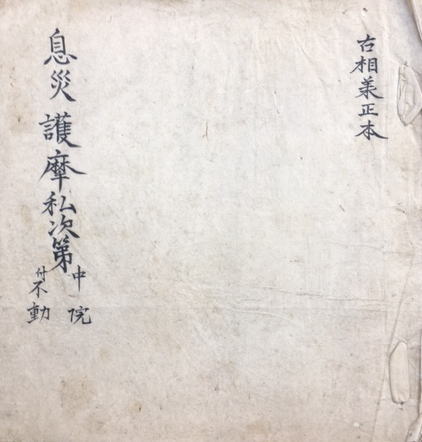 古相正本
息災護摩私次第
中院
付不動